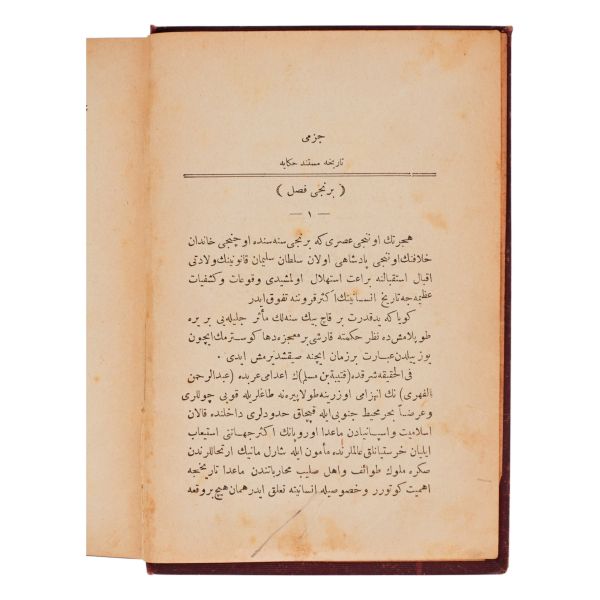 جزمی
تاریخه مستند حکایه
﴿ برنجی فصل ﴾
— ١ —
هجرتك اوننجی عصری که برنجی سنه سنده اوچنجی خاندان
خلافتك اوننجی پادشاهی اولان سلطان سلیمان قانونینك ولادتی
اقبال استقبالنه براعت استهلال اولمشیدی وقوعات وکشفیات
عظیمه جه تاریخ انسانیتك اکثر قروننه تفوق ایدر
کویا که ید قدرت بر قاچ بیك سنه لك مآثر جلیله یی بر یره
طوپلامش ده نظر حکمته قارشی بر معجزه دها کوسترمك ایچون
یوز ییلدن عبارت بر زمان ایچنه صیقشدیرمش ایدی .
فی الحقیقه شرقده (قتیبة بن مسلم)ك اعدامی غربده (عبدالرحمن
الفهری) نك انهزامی اوزرینه طاغلریله قوبی چوللری
وعرضاً بحر محیط جنوبی ایله قپچاق حدودلری داخلنده قالان
اسلامیت واسپانیادن ماعدا اوروپانك اکثر جهاتنی استیعاب
ایلیان خرستیانلق عالملرنده مأمون ایله شارل مانیك ارتحاللرندن
صکره ملوك طوائف واهل صلیب محارباتندن ماعدا تاریخجه
اهمیت کوتورر وخصوصیله انسانیته تعلق ایدر همان هیچ بر وقعه